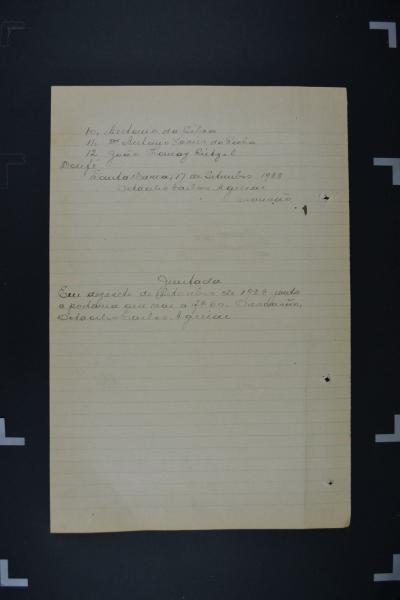 10. Antonio da Silva
11. Dr Antonio Xavier da Rocha
12. João Thomaz
Dou fé.
Santa Maria, 17 de Setembro 1928
Octacilio Carlos Aguiar
escrivão
Juntada
Em dezesete de Setembro de 1928 junto
a portaria que vai a Eu escrivão,
Octacilio Carlos Aguiar